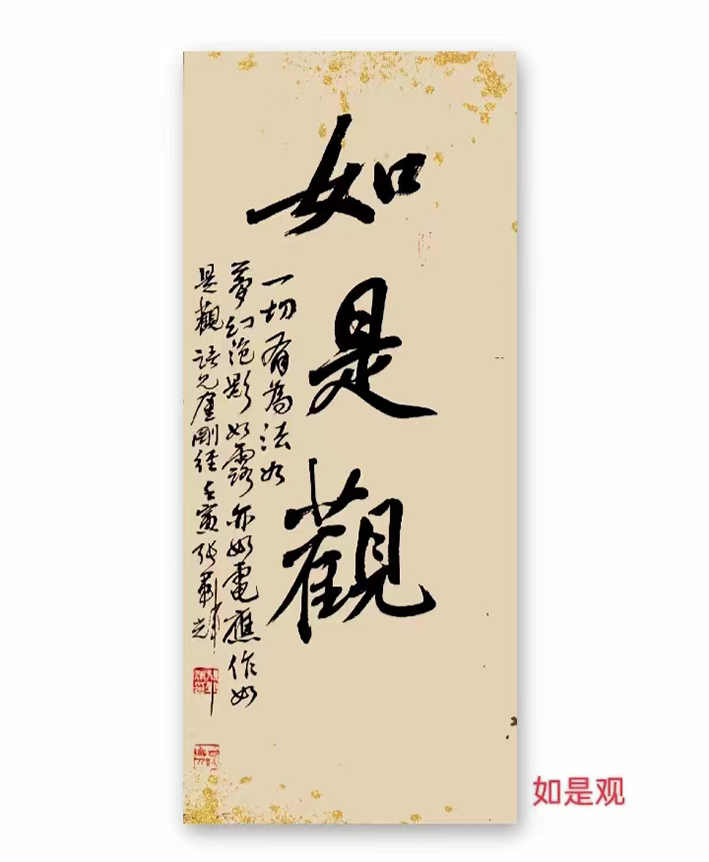 如是觀
一切有為法如
夢幻泡影如露亦如電應作如
是觀 语见金剛経 壬寅 张
如是观